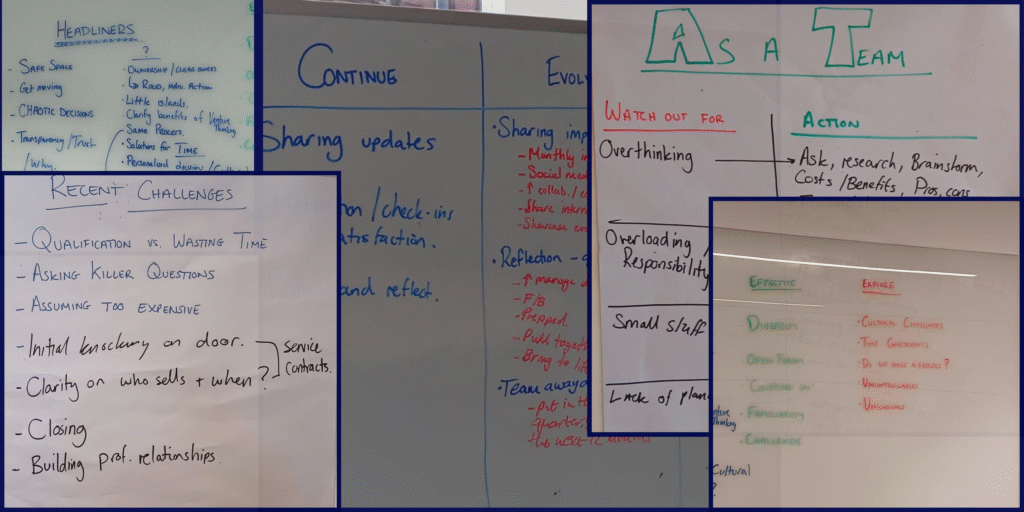 HEADLINERS
- SAFE SPACE
- Get moving
- CHAOTIC DECISIONS
- Transparency/Trust
/Why
?
• OWNERSHIP / CLEAR
↳ Roles, Action
• Little islands.
• Clarify benefits of Venture Thinking
Same
• Solutions for TIME
• Personalised
RECENT CHALLENGES
- QUALIFICATION VS. WASTING TIME
- ASKING KILLER QUESTIONS
- ASSUMING TOO EXPENSIVE
- Initial knocking on door.
- Clarity on who sells + when?
SERVICE CONTRACTS.
- Closing
- Building prof. relationships.
CONTINUE
Sharing updates
on/check-ins
atisfaction.
and reflect.
EVOL
• Sharing imp
- Monthly i
- Social me
- ↑ collab./c
- Share inter
- Showcase
• Reflection -
- ↑ manage
- F/B
- Prepped.
- Pull togeth
- Bring to li
• Team away
- put in th
quarter.
the next 12 months
AS A TEAM
WATCH OUT FOR
ACTION
Overthinking
Ask, research, Brainstorm,
Costs/Benefits, Pros, cons
Overloading /
Responsibility
Small stuff
Lack of plan
EFFECTIVE
• DIVERSITY
OPEN FORUM
• FAMILIARITY
• CHALLENGE
EXPLORE
• CULTURAL
• TIME CONSTRAINTS
• DO WE HAVE ?
• UNCONTROLLABLES
• UNKNOWNS
nture
Thinking
Cultural
?